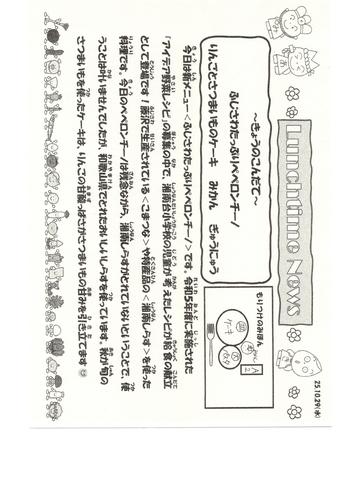 Lunchtime News
25.10.29(水)
～きょうのこんだて～
ふじさわたっぷりペペロンチーノ
りんごとさつまいものケーキ　みかん　ぎゅうにゅう
もりつけのみほん
今日は新メニュー＜ふじさわたっぷりペペロンチーノ＞です。令和5年度に実施された
「アイデア野菜レシピ」の募集の中で、湘南台小学校の児童が考えたレシピが給食の献立
として登場です！藤沢で生産されている＜こまつな＞や特産品の＜湘南しらす＞を使った
料理です。今日のペペロンチーノは残念ながら、湘南しらすがとれていないということで、使
うことは叶いませんでしたが、和歌山県でとれたおいしいしらすを使っています。秋が旬の
さつまいもを使ったケーキは、りんごの甘酸っぱさがさつまいもの甘みを引き立てます